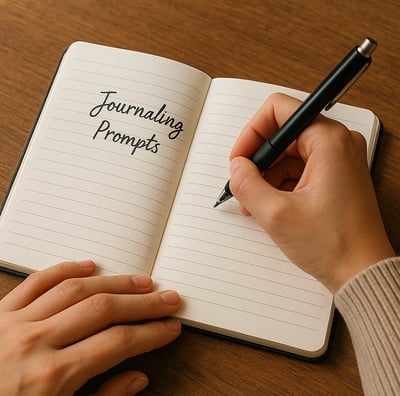 Journaling
Prompts